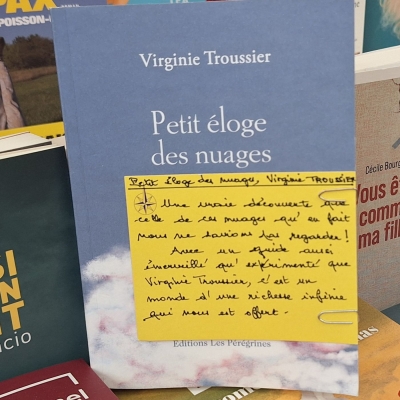 PAX
POISSON-
Virginie Troussier
Petit éloge
des nuages
Petit éloge des nuages, Virginie TROUSSIER
Une vraie découverte que
celle de ces nuages qu'en fait
nous ne savions pas regarder !
Avec un guide aussi
émerveillé qu'expérimenté que
Virginie Troussier, c'est un
monde d'une richesse infinie
qui nous est offert.
Editions Les Pérégrines
Cécile Bourg
Vous ê
comm
ma fill